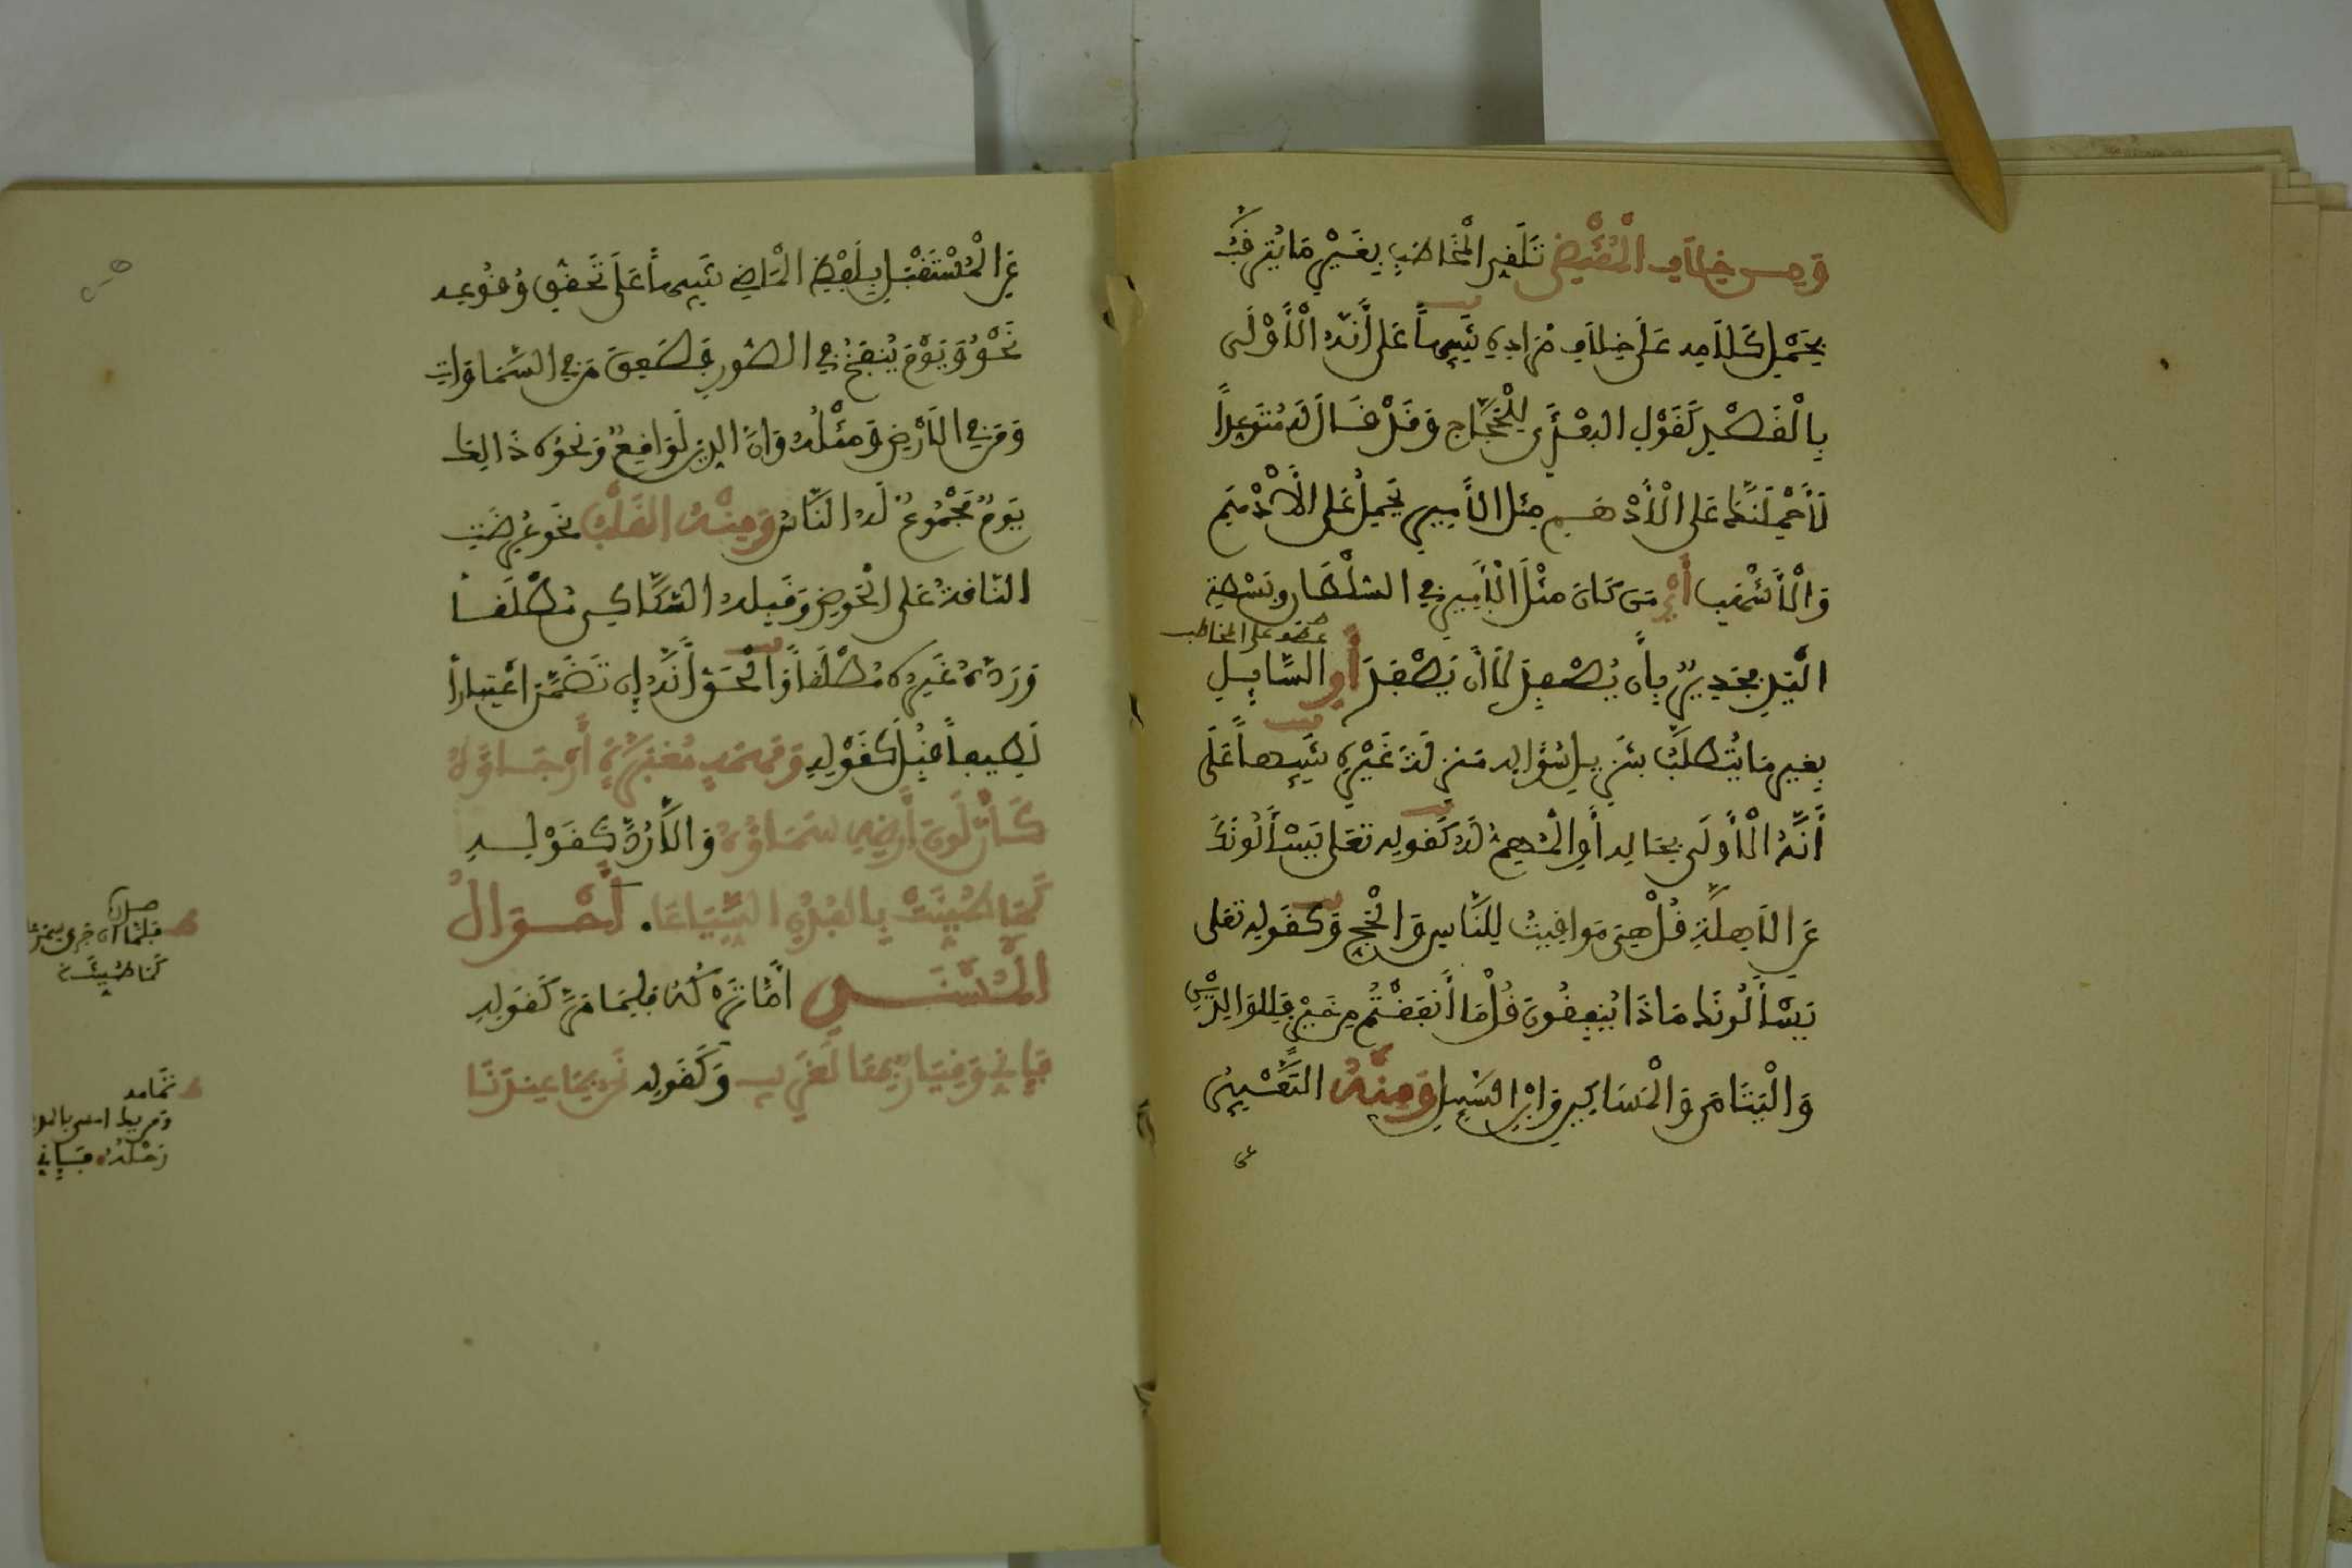 وَمِن خِلَافِ الْمُقْتَضَى تَلَقِّي الْمُخَاطَبِ بِغَيْرِ مَا يَتَرَقَّبُ
بِحَمْلِ كَلَامِهِ عَلَى خِلَافِ مُرَادِهِ تَنْبِيهاً عَلَى أَنَّهُ الْأَوْلَى
بِالْقَصْدِ كَقَوْلِ القبعْثَرَى لِلْحَجَّاجِ وَقَدْ قَالَ لَهُ مُتَوَعِّداً
لَأَحْمِلَنَّكَ عَلَى الْأَدْهَمِ مِثْلُ الْأَمِيرِ يَحْمِلُ عَلَى الْأَدْهَمِ
وَالْأَشْهَبِ أَيْ مَن كَانَ مِثْلَ الْأَمِيرِ فِي السُّلْطَانِ وَبَسْطَةِ
عطف على المخاطب
الْيَدِ فَجَدِيرٌ بِأَن يُصْفِدَ لَا أَن يَصْفِدَ أَوِ السَّايِلِ
بِغَيْرِ مَا يُتَطَلَّبُ بِتَنْزِيلِ سُؤَالِهِ مَنْزِلَةَ غَيْرِهِ تَنْبِيهاً عَلَى
أَنَّهُ الْأَوْلَى بِحَالِهِ أَوِ الْمُهِمُّ لَهُ كَقَوْلِهِ تَعَلَى يَسْأَلُونَكَ
عَنِ الْأَهِلَّةِ قُلْ هِيَ مَوَاقِيتُ لِلنَّاسِ وَالْحَجِّ وَكَقَوْلِهِ تَعَلَى
يَسْأَلُونَكَ مَاذَا يُنفِقُونَ قُلْ مَا أَنفَقْتُم مِّنْ خَيْرٍ فَلِلْوَالِدَيْنِ
وَالْيَتَامَى وَالْمَسَاكِينِ وَابْنِ السَّبِيلِ وَمِنْهُ التَّعْبِيرُ
عن
عَنِ الْمُسْتَقْبَلِ بِلَفْظِ الْمَاضِي تَنْبِيهاً عَلَى تَحَقُّقِ وُقُوعِهِ
نَحْوُ وَيَوْمَ يُنفَخُ فِي الصُّورِ فَصَعِقَ مَن فِي السَّمَاوَاتِ
وَمَن فِي الْأَرْضِ وَمِثْلُهُ وَإِنَّ الدِّينَ لَوَاقِعٌ وَنَحْوُهُ ذَالِكَ
يَوْمٌ مَّجْمُوعٌ لَّهُ النَّاسُ وَمِنْهُ القَلْبُ نَحْوُ عَرَضْتُ
النَّاقَةَ عَلَى الْحَوْضِ وَقَبِلَهُ السَّكَّاكِي مُطْلَقاً
وَرَدَّهُ غَيْرُهُ مُطْلَقاً وَالْحَقُّ أَنَّهُ إِن تَضَمَّنَ اعْتِبَاراً
لَطِيفاً قُبِلَ كَقَوْلِهِ وَمَهْمَهٍ مُغْبَرَّةٍ أَرْجَاؤُهُ
كَأَنَّ لَوْنَ أَرْضِهِ سَمَاؤُهُ وَإِلَّا رُدَّ كَقَوْلِهِ
كَمَا طَيَّنْتَ بِالْفَدَنِ السَّيَاعَا. أَحْوَالُ
الْمُسْنَدِ أَمَّا تَرْكُهُ فَلِمَا مَرَّ كَقَوْلِهِ
فَإِنِّي وَقَيَّارٌ بِهَا لَغَرِيبُ وَكَقَوْلِهِ نَحْنُ بِمَا عِندَنَا
صدره
فَلَمَّا أَن جَرَى سِمَنٌ
كَمَا طَيَّنْتَ
تمامه
رَحْلُهُ فَإِنِّي